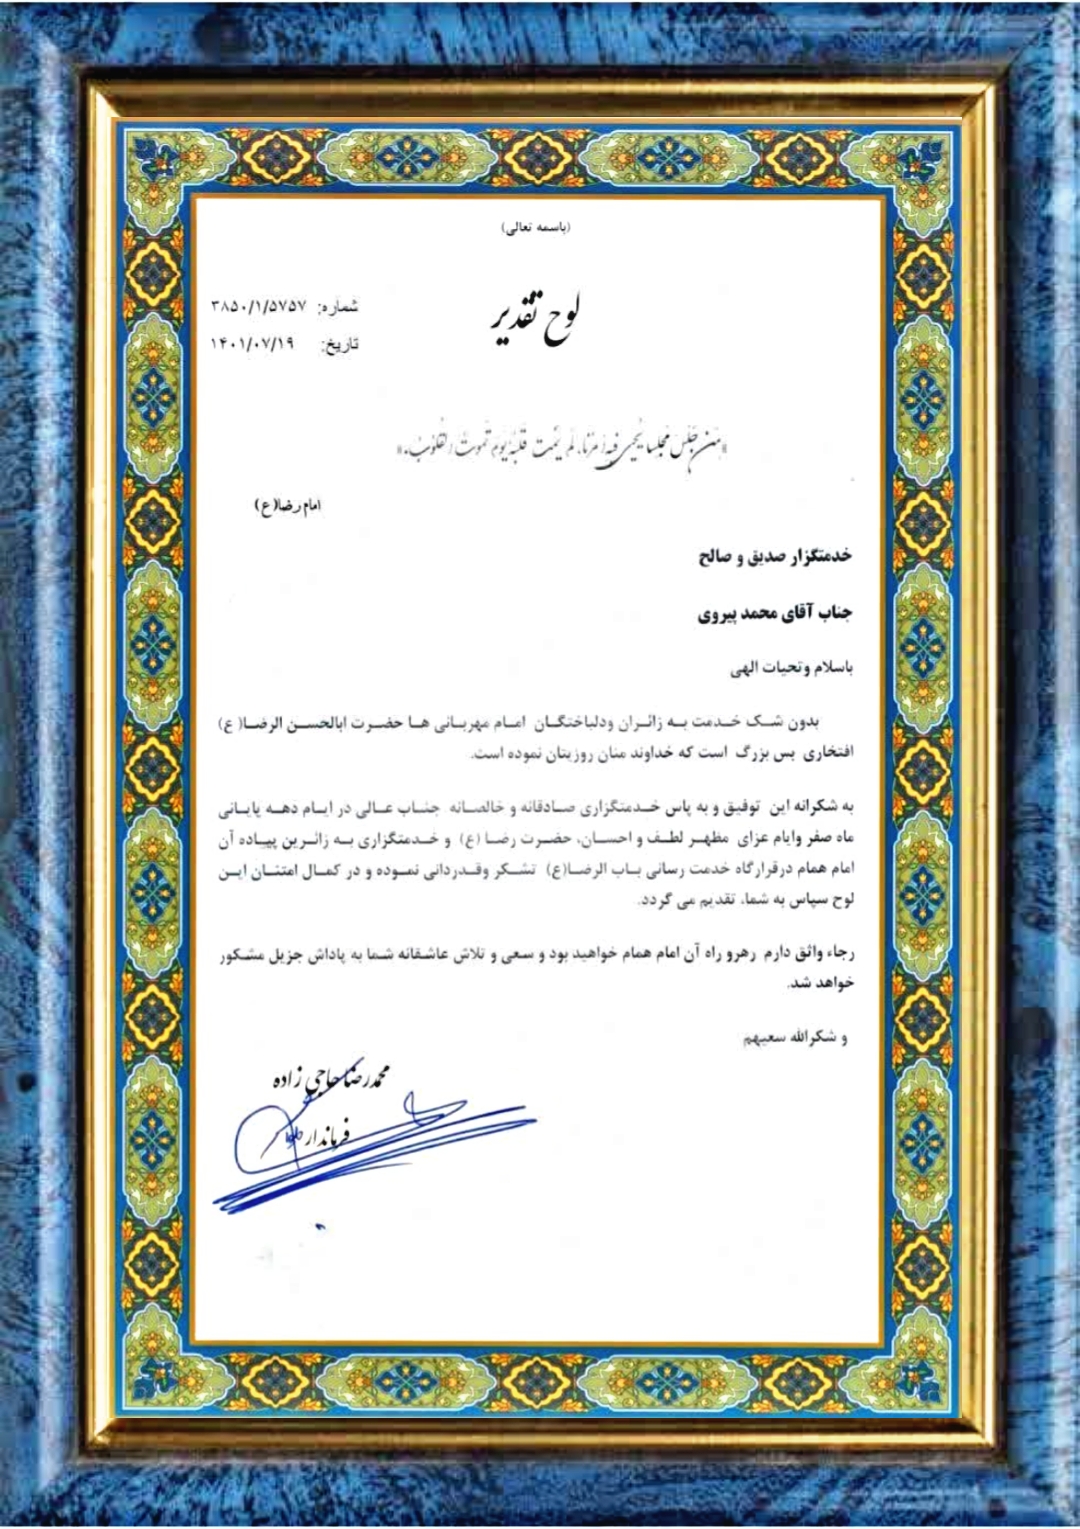 (باسمه تعالی)
لوح تقدیر
شماره: ۳۸۵۰/۱/۵۷۵۷
تاریخ: ۱۴۰۱/۰۷/۱۹
«مَن جَلَسَ مَجلِسا یُحیی فیهِ اَمرُنا، لَم یَمُت قَلبُهُ یَومَ تَموتُ القُلوبُ.»
امام رضا(ع)
خدمتگزار صدیق و صالح
جناب آقای محمد پیروی
باسلام وتحیات الهی
بدون شک خدمت به زائران ودلباختگان امام مهربانی ها حضرت ابالحسن الرضا(ع)
افتخاری بس بزرگ است که خداوند منان روزیتان نموده است.
به شکرانه این توفیق و به پاس خدمتگزاری صادقانه و خالصانه جناب عالی در ایام دهه پایانی
ماه صفر وایام عزای مظهر لطف و احسان، حضرت رضا (ع) و خدمتگزاری به زائرین پیاده آن
امام همام درقرارگاه خدمت رسانی باب الرضا(ع) تشکر وقدردانی نموده و در کمال امتنان این
لوح سپاس به شما، تقدیم می گردد.
رجاء واثق دارم رهرو راه آن امام همام خواهید بود و سعی و تلاش عاشقانه شما به پاداش جزیل مشکور
خواهد شد.
و شکرالله سعیهم
محمدرضا حاجی زاده
فرماندار